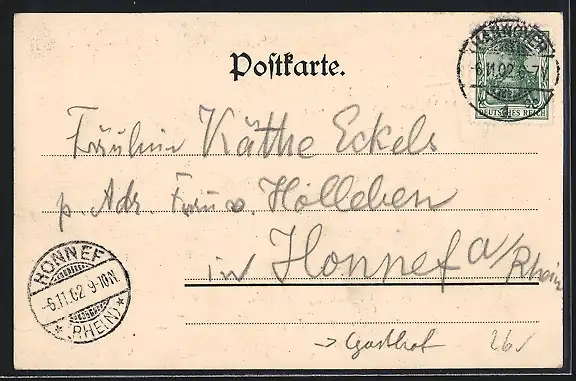 Postkarte.
HANNOVER
-6.11.02.6-7
1
DEUTSCHES REICH
Fräulein Käthe Eckels
p. Adr. Frau v. Holleben
in Honnef a/Rhein
HONNEF
-6.11.02 9-10N.
* (RHEIN) *
→ Gasthof